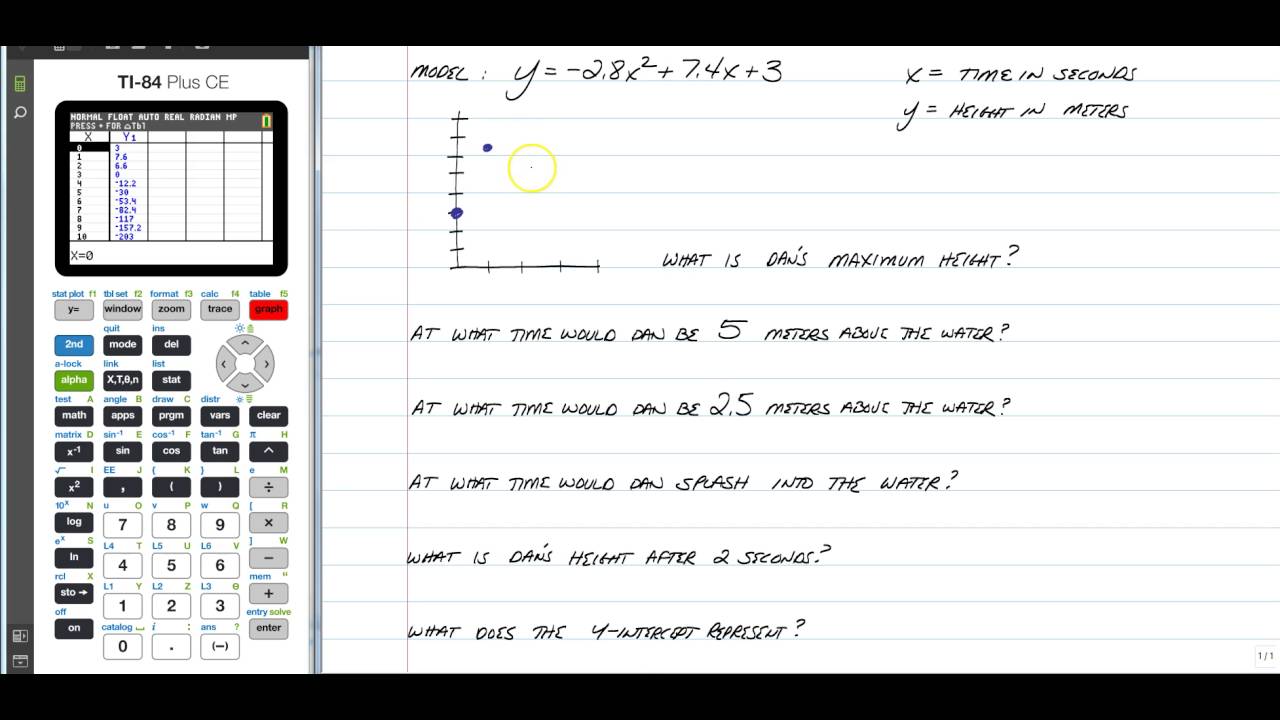 TI-84 Plus CE
NORMAL FLOAT AUTO REAL RADIAN MP
PRESS + FOR △Tbl
X Y1
0 3
1 7.6
2 6.6
3 0
4 -12.2
5 -30
6 -53.4
7 -82.4
8 -117
9 -157.2
10 -203
X=0
stat plot f1 tbl set f2 format f3 calc f4 table f5
y= window zoom trace graph
quit ins
2nd mode del
a-lock link list
alpha X,T,θ,n stat
test A angle B draw C distr
math apps prgm vars clear
matrix D sin⁻¹ E cos⁻¹ F tan⁻¹ G π H
x⁻¹ sin cos tan ^
√ I EE J { K } L e M
x² , ( ) ÷
10ˣ N u O v P w Q [ R
log 7 8 9 ×
eˣ S L4 T L5 U L6 V ] W
ln 4 5 6 −
rcl X L1 Y L2 Z L3 θ mem "
sto→ 1 2 3 +
off catalog i : ans ? entry solve
on 0 . (−) enter
MODEL : y = -2.8x² + 7.4x + 3
x = TIME IN SECONDS
y = HEIGHT IN METERS
WHAT IS DAN'S MAXIMUM HEIGHT?
AT WHAT TIME WOULD DAN BE 5 METERS ABOVE THE WATER?
AT WHAT TIME WOULD DAN BE 2.5 METERS ABOVE THE WATER?
AT WHAT TIME WOULD DAN SPLASH INTO THE WATER?
WHAT IS DAN'S HEIGHT AFTER 2 SECONDS?
WHAT DOES THE Y-INTERCEPT REPRESENT?
1 / 1